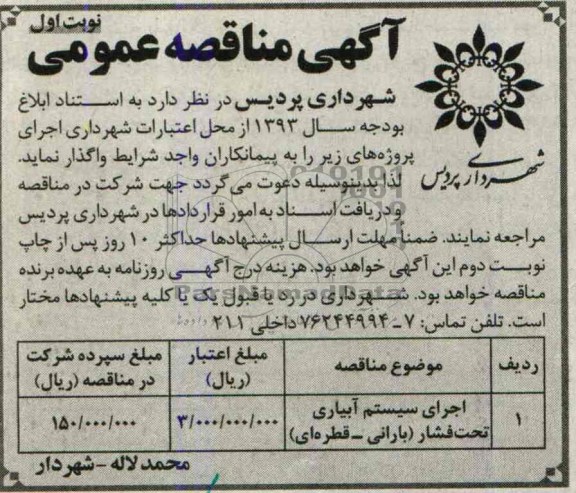 نوبت اول
آگهی مناقصه عمومی
شهرداری پردیس
شهرداری پردیس در نظر دارد به استناد ابلاغ
بودجه سال ۱۳۹۳ از محل اعتبارات شهرداری اجرای
پروژه‌های زیر را به پیمانکاران واجد شرایط واگذار نماید.
لذا بدینوسیله دعوت می‌گردد جهت شرکت در مناقصه
و دریافت اسناد به امور قراردادها در شهرداری پردیس
مراجعه نمایند. ضمناً مهلت ارسال پیشنهادها حداکثر ۱۰ روز پس از چاپ
نوبت دوم این آگهی خواهد بود. هزینه درج آگهی روزنامه به عهده برنده
مناقصه خواهد بود. شهرداری در رد یا قبول یک یا کلیه پیشنهادها مختار
است. تلفن تماس: ۷ـ۷۶۲۴۴۹۹۴ داخلی ۲۱۱
ParsNamadData
ردیف موضوع مناقصه مبلغ اعتبار (ریال) مبلغ سپرده شرکت در مناقصه (ریال)
۱ اجرای سیستم آبیاری تحت‌فشار (بارانی ـ قطره‌ای) ۳/۰۰۰/۰۰۰/۰۰۰ ۱۵۰/۰۰۰/۰۰۰
محمد لاله - شهردار